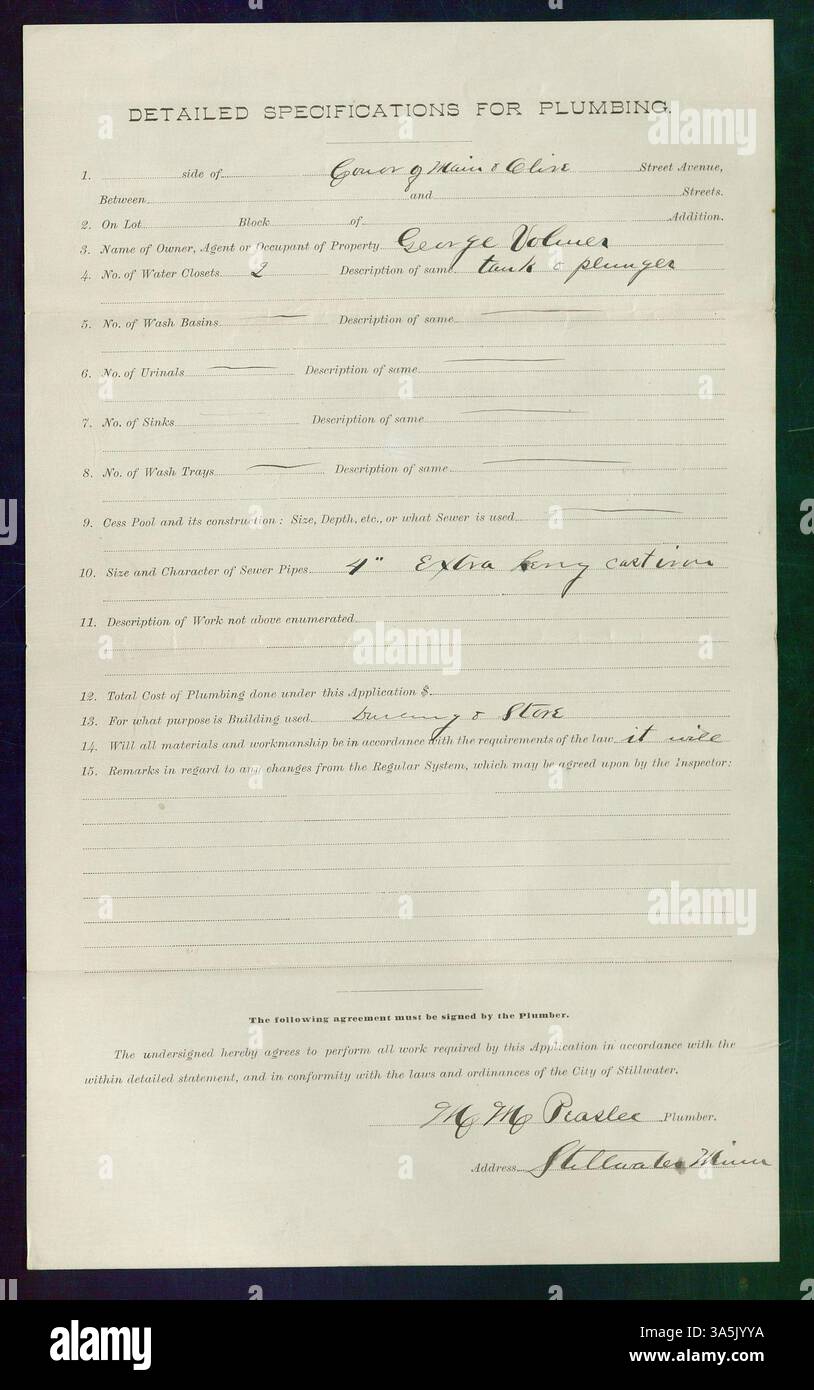 DETAILED SPECIFICATIONS FOR PLUMBING.
1. side of Conor of Main & Olive Street Avenue,
Between and Streets.
2. On Lot Block of Addition.
3. Name of Owner, Agent or Occupant of Property George Volmer
4. No. of Water Closets 2 Description of same tank & plunger
5. No. of Wash Basins Description of same
6. No. of Urinals Description of same
7. No. of Sinks Description of same
8. No. of Wash Trays Description of same
9. Cess Pool and its construction: Size, Depth, etc., or what Sewer is used
10. Size and Character of Sewer Pipes 4" Extra heavy cast iron
11. Description of Work not above enumerated
12. Total Cost of Plumbing done under this Application $
13. For what purpose is Building used & Store
14. Will all materials and workmanship be in accordance with the requirements of the law it will
15. Remarks in regard to any changes from the Regular System, which may be agreed upon by the Inspector:
The following agreement must be signed by the Plumber.
The undersigned hereby agrees to perform all work required by this Application in accordance with the
within detailed statement, and in conformity with the laws and ordinances of the City of Stillwater.
M M Peaslee Plumber.
Address Stillwater Minn
alamy
Image ID: 3A5JYYA
www.alamy.com